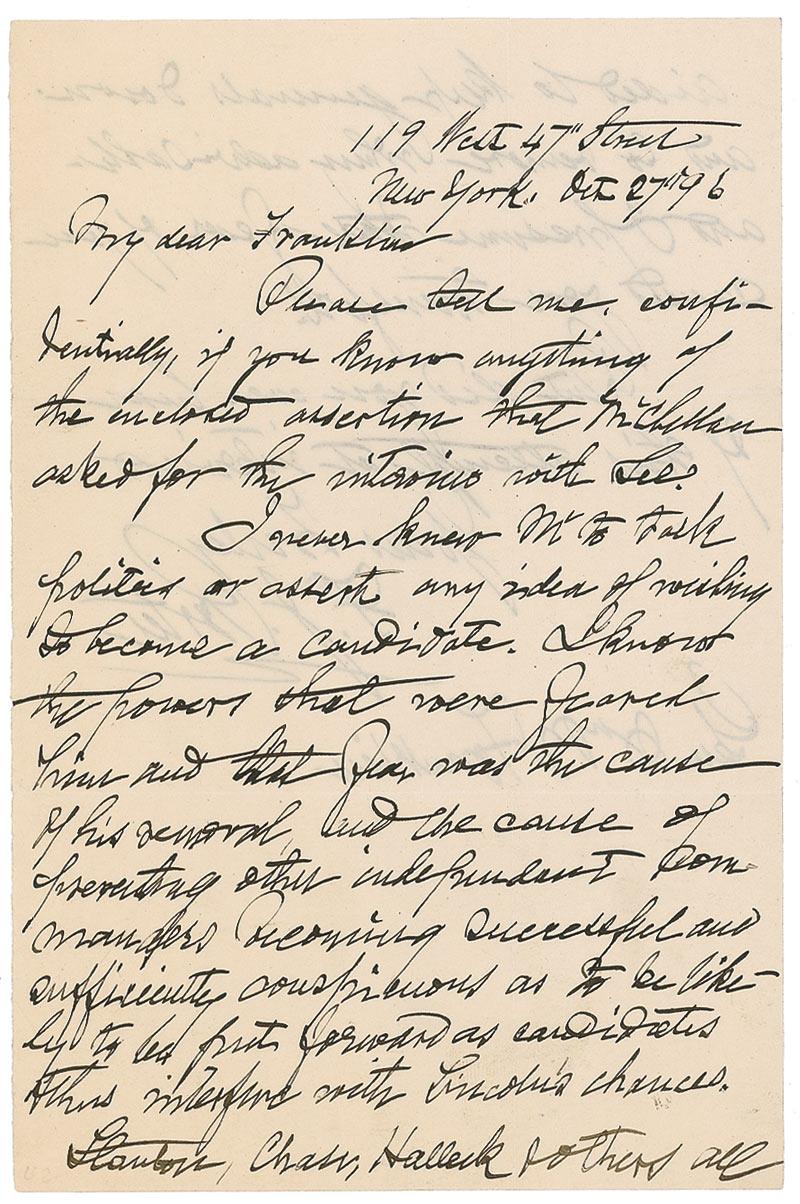 119 West 47" Street
New York, Oct 27th 96
My dear Franklin
Please tell me, confi-
dentially, if you know anything of
the enclosed assertion that McClellan
asked for the interview with Lee?
I never knew Mc to talk
politics or assert any idea of wishing
to become a candidate. I know
the powers that were feared
him and that fear was the cause
of his removal, and the cause of
preventing other independent Com-
manders becoming successful and
sufficiently conspicuous as to be like-
ly to be put forward as candidates
& thus interfere with Lincoln's chances.
Stanton, Chase, Halleck & others all